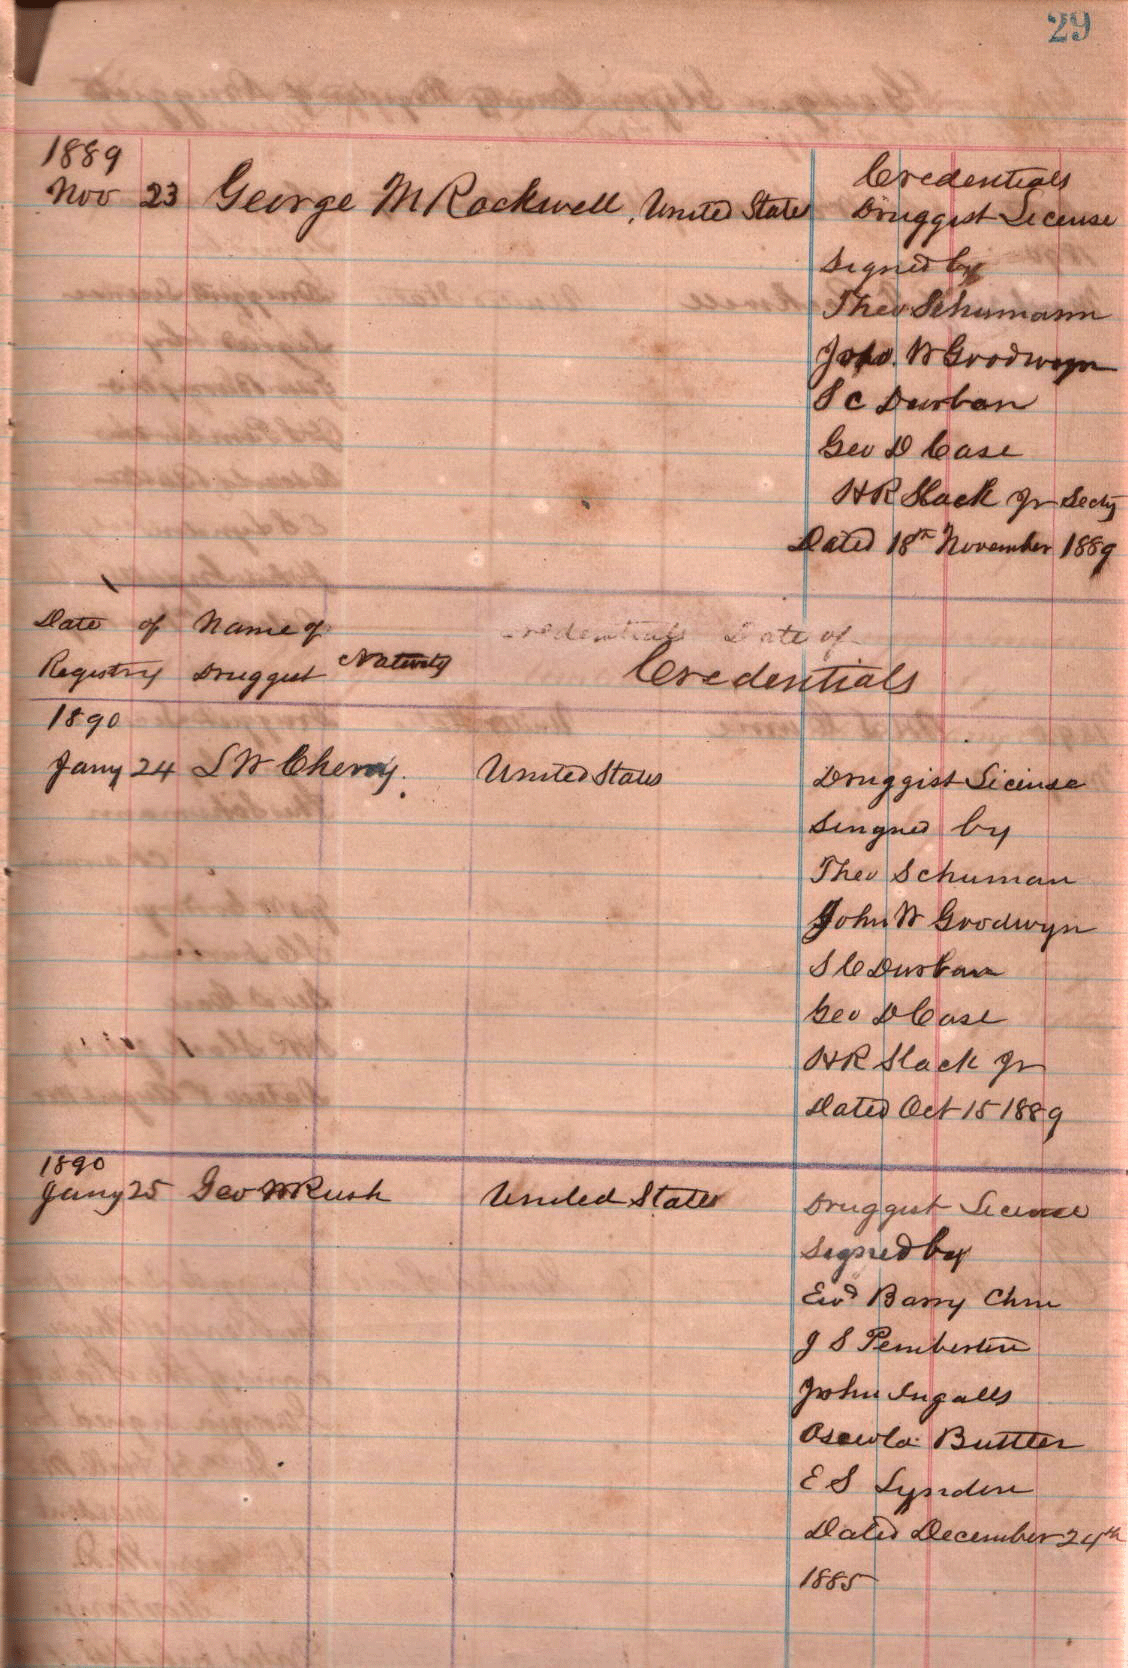 29
1889
Nov 23 George M Rockwell, United States
Credentials
Druggist License
Signed by
Theo Schumann
Jno. W Goodwyn
S C Durban
Geo D Case
H R Slack Jr Secty
Dated 18th November 1889
Date of Name of
Credentials Date of
Registry Druggist Nativity Credentials
1890
Jany 24 S W Cherry. United States Druggist License
Singned by
Theo Schuman
John W Goodwyn
S C Durban
Geo D Case
H R Slack Jr
Dated Oct 15 1889
1890
Jany 25 Geo W Rush United States Druggist License
Signed by
Ewd Barry Chm
J S Pemberton
John Ingalls
Oscewla Buttler
E S Lyndon
Dated December 24th
1885